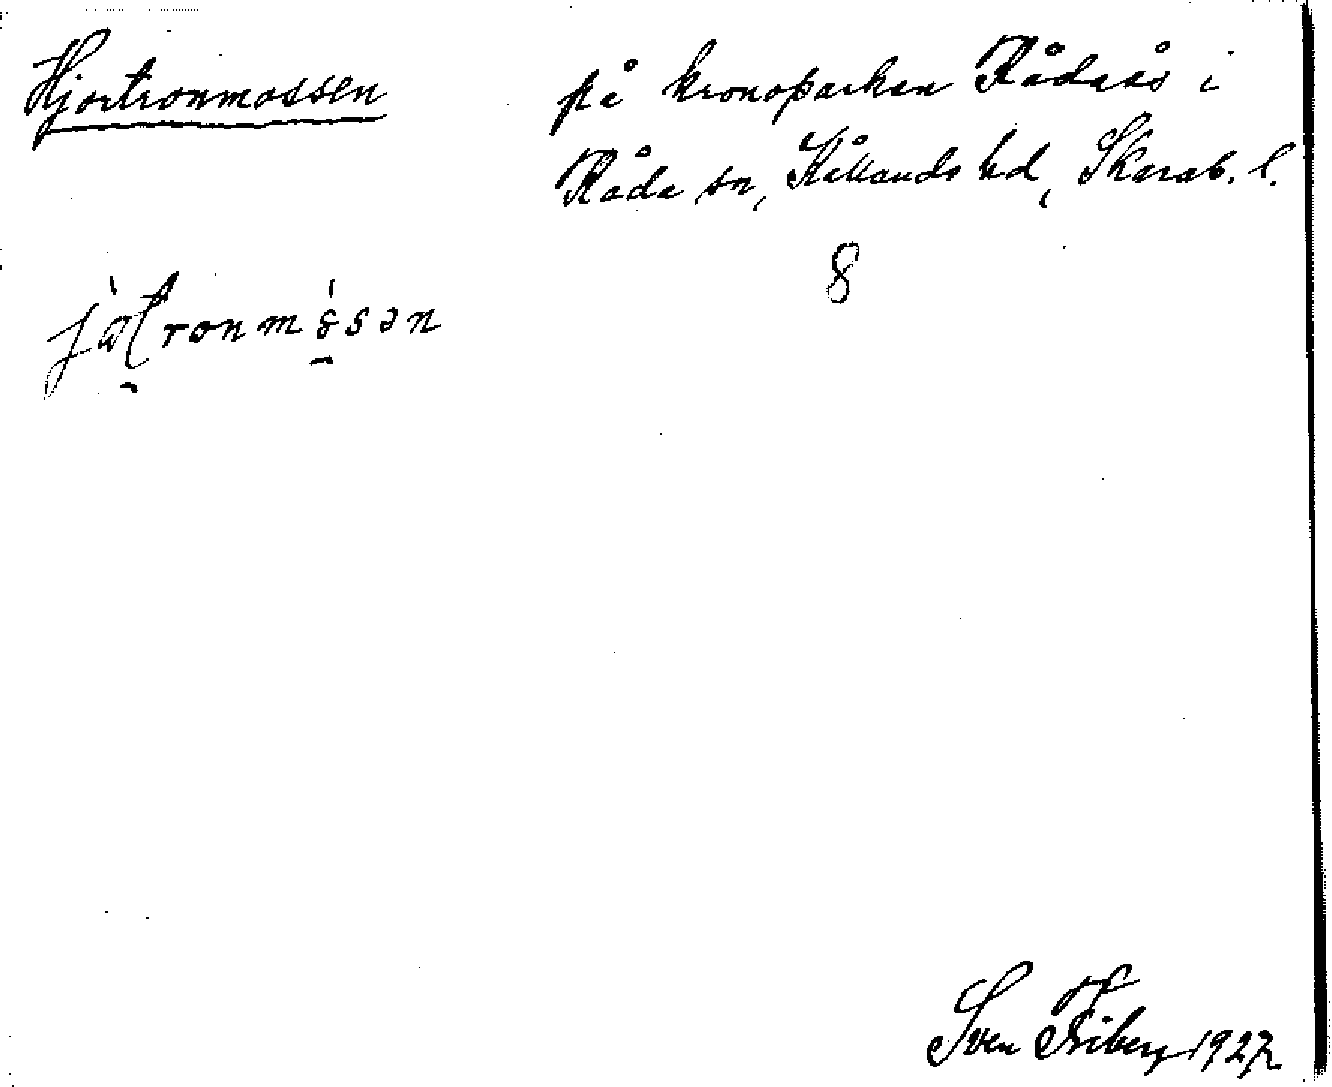 Hjortronmossen
på kronoparken Rådaås i
Råda sn, Kållands hd, Skarab. l.
8
Sven Friberg 1927